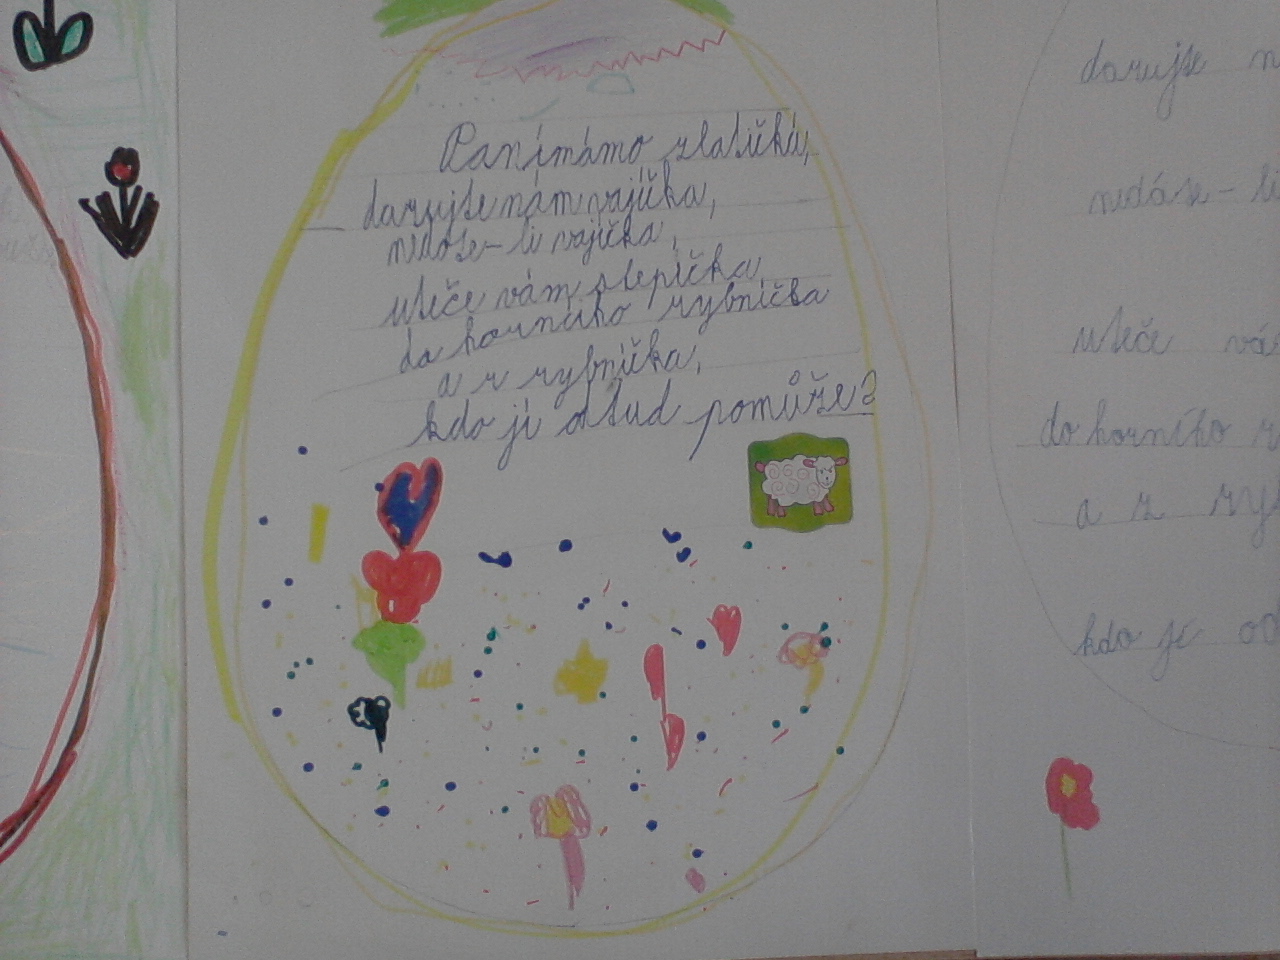 Panímámo zlatičká,
darujte nám vajíčka,
nedáte-li vajíčka,
uteče vám slepička,
do horního rybníčka
a z rybníčka,
kdo jí otud pomůže?
darujte
nedáte-li
uteče
do horního
a z
kdo jí